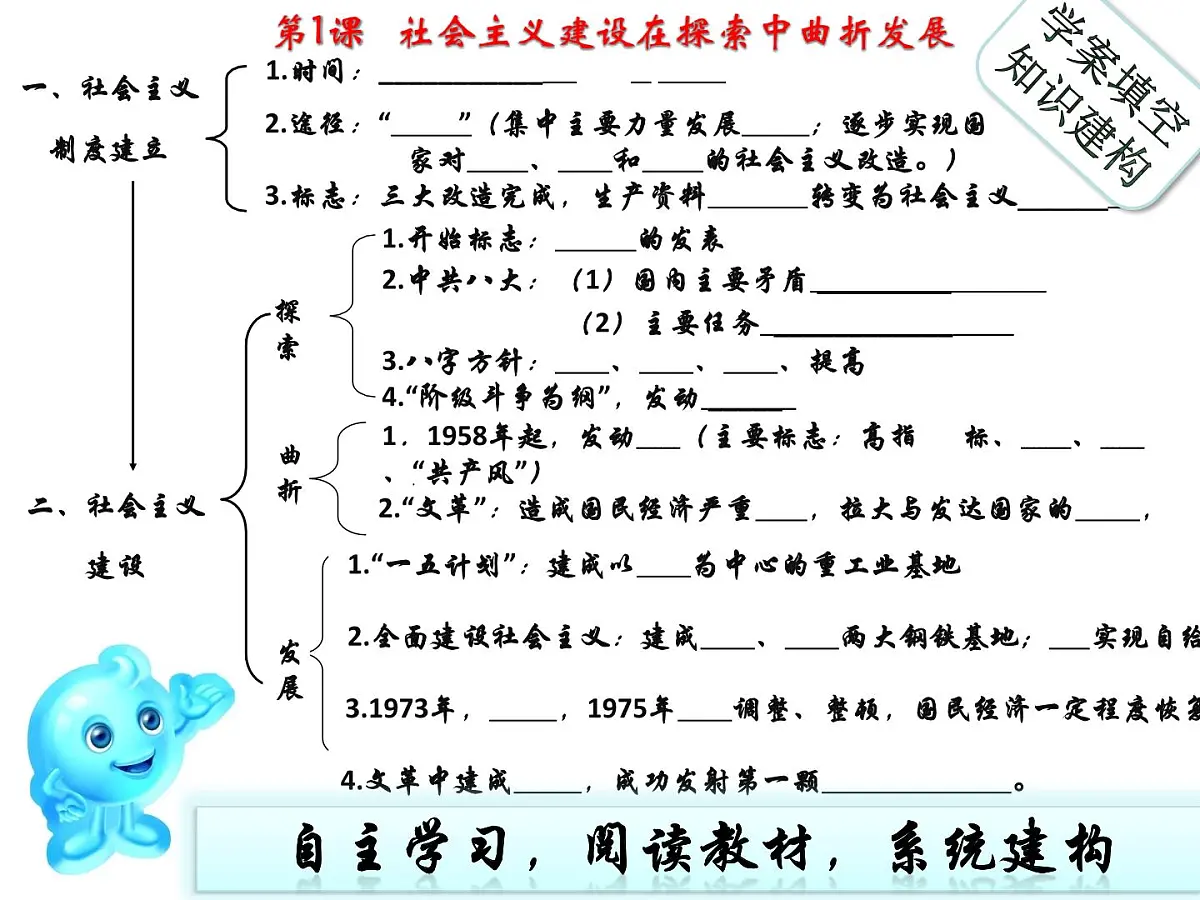 第1课 社会主义建设在探索中曲折发展
学案填空
知识建构
一、社会主义
制度建立
1.时间：______________ _ _____
2.途径：“_____”（集中主要力量发展_____；逐步实现国
家对____、____和____的社会主义改造。）
3.标志：三大改造完成，生产资料_______转变为社会主义_______
探
索
1.开始标志：______的发表
2.中共八大：（1）国内主要矛盾_________________
（2）主要任务___________________
3.八字方针：____、____、____、提高
4.“阶级斗争为纲”，发动_______
曲
折
1．1958年起，发动___（主要标志：高指 标、____、___
、“共产风”）
2.“文革”：造成国民经济严重____，拉大与发达国家的_____，
二、社会主义
建设
发
展
1.“一五计划”：建成以____为中心的重工业基地
2.全面建设社会主义：建成____、____两大钢铁基地；___实现自给
3.1973年，_____，1975年____调整、整顿，国民经济一定程度恢复
4.文革中建成_____，成功发射第一颗______________。
自主学习，阅读教材，系统建构